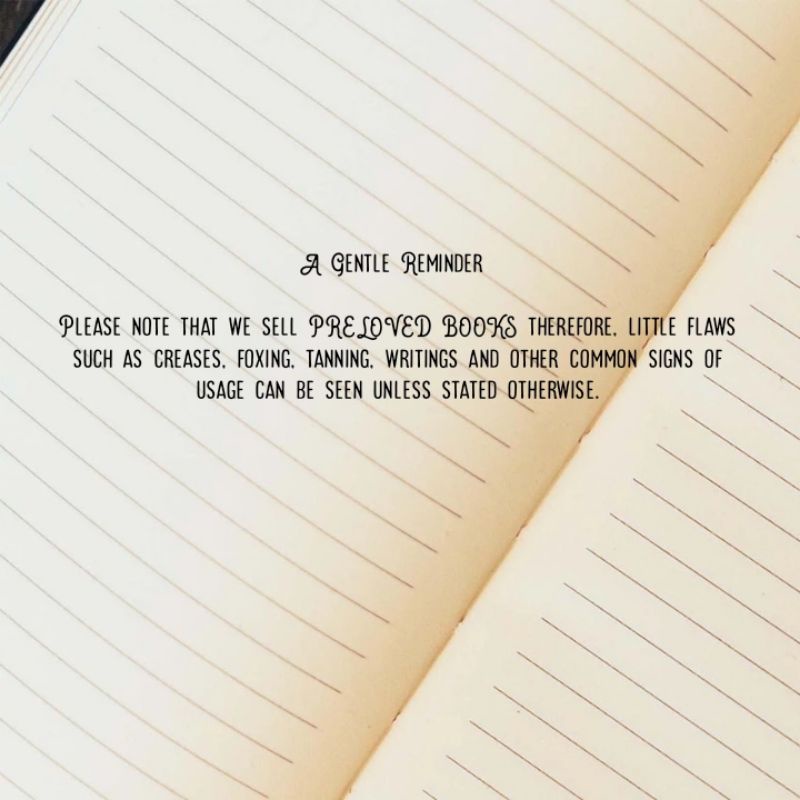 A Gentle Reminder
Please note that we sell PRELOVED BOOKS therefore, little flaws
such as creases, foxing, tanning, writings and other common signs of
usage can be seen unless stated otherwise.